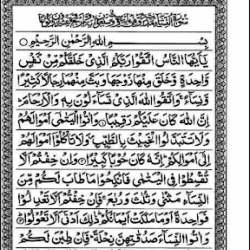 بِسْمِ اللّٰهِ الرَّحْمٰنِ الرَّحِيْمِ
يٰٓاَيُّهَا النَّاسُ اتَّقُوْا رَبَّكُمُ الَّذِيْ خَلَقَكُمْ مِّنْ نَّفْسٍ
وَّاحِدَةٍ وَّخَلَقَ مِنْهَا زَوْجَهَا وَبَثَّ مِنْهُمَا رِجَالًا كَثِيْرًا
وَّنِسَآءً وَاتَّقُوا اللّٰهَ الَّذِيْ تَسَآءَلُوْنَ بِهٖ وَالْاَرْحَامَ
اِنَّ اللّٰهَ كَانَ عَلَيْكُمْ رَقِيْبًا وَاٰتُوا الْيَتٰمٰٓى اَمْوَالَهُمْ
وَلَا تَتَبَدَّلُوا الْخَبِيْثَ بِالطَّيِّبِ وَلَا تَاْكُلُوْٓا اَمْوَالَهُمْ
اِلٰٓى اَمْوَالِكُمْ اِنَّهٗ كَانَ حُوْبًا كَبِيْرًا وَاِنْ خِفْتُمْ اَلَّا
تُقْسِطُوْا فِي الْيَتٰمٰى فَانْكِحُوْا مَا طَابَ لَكُمْ مِّنَ
النِّسَآءِ مَثْنٰى وَثُلٰثَ وَرُبٰعَ فَاِنْ خِفْتُمْ اَلَّا تَعْدِلُوْا
فَوَاحِدَةً اَوْ مَا مَلَكَتْ اَيْمَانُكُمْ ذٰلِكَ اَدْنٰٓى اَلَّا تَعُوْلُوْا
وَاٰتُوا النِّسَآءَ صَدُقٰتِهِنَّ نِحْلَةً فَاِنْ طِبْنَ لَكُمْ